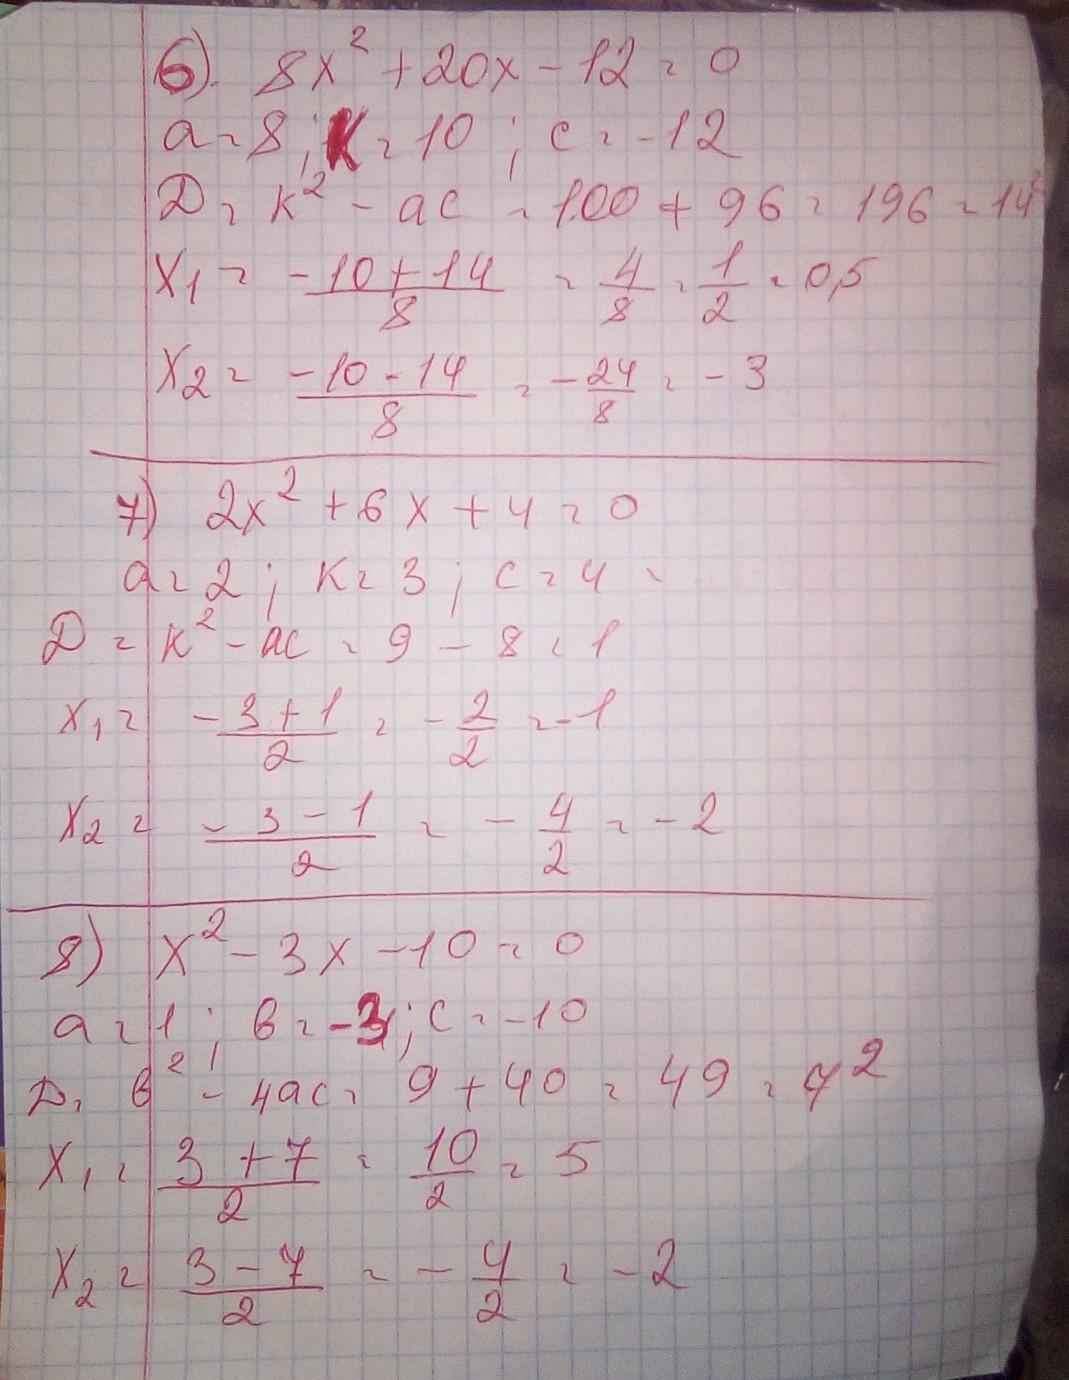 6). 8x² + 20x - 12 = 0
a = 8 ; k = 10 ; c = -12
D = k² - ac = 100 + 96 = 196 = 14²
x₁ = -10 + 14 / 8 = 4/8 = 1/2 = 0,5
x₂ = -10 - 14 / 8 = -24/8 = -3
7) 2x² + 6x + 4 = 0
a = 2 ; k = 3 ; c = 4 =
D = k² - ac = 9 - 8 = 1
x₁ = -3 + 1 / 2 = -2/2 = -1
x₂ = -3 - 1 / 2 = -4/2 = -2
8) x² - 3x - 10 = 0
a = 1 ; в = -3 ; c = -10
D = в² - 4ac = 9 + 40 = 49 = 7²
x₁ = 3 + 7 / 2 = 10/2 = 5
x₂ = 3 - 7 / 2 = -4/2 = -2